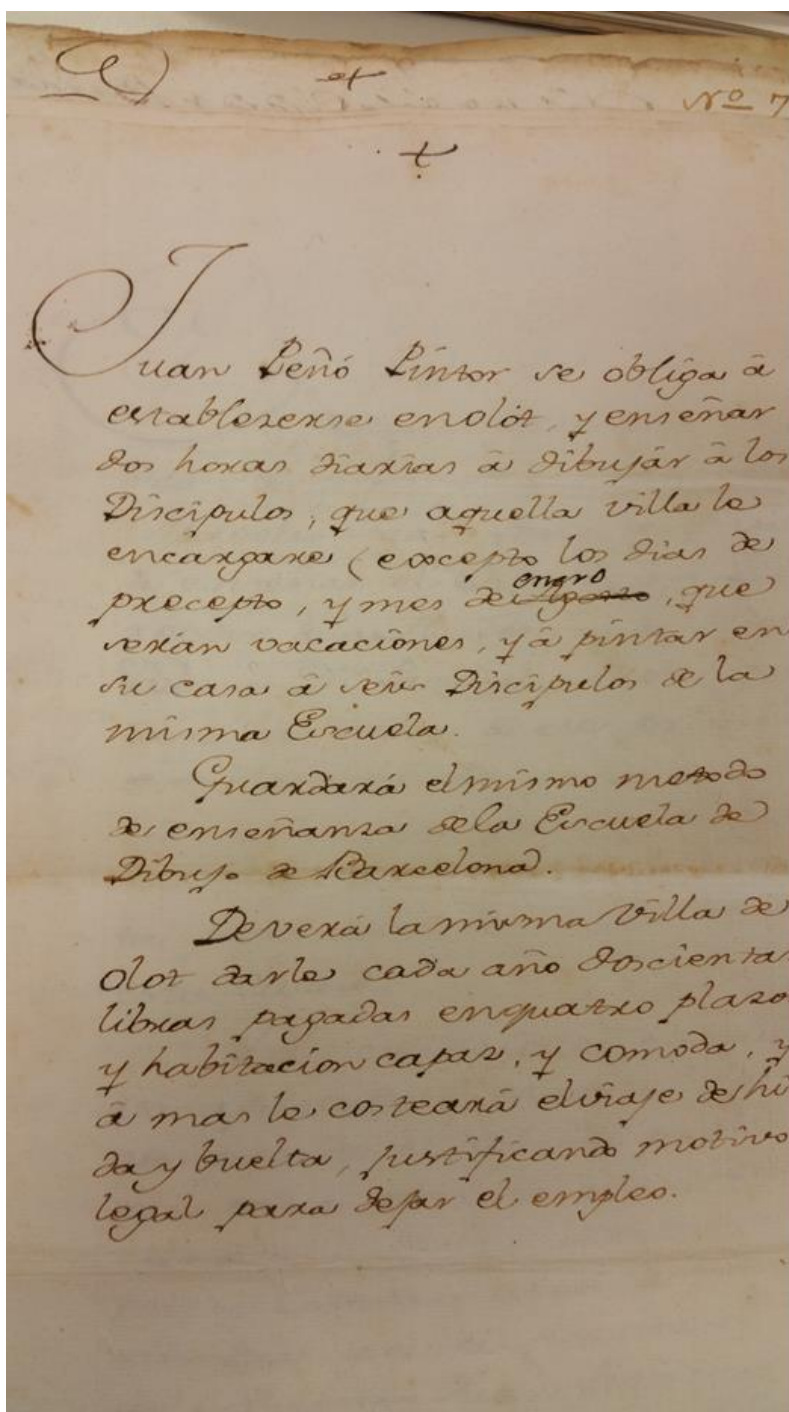 Nº 7
Juan Peñó Pintor se obliga â
establezerse en olót, y enseñar
dos horas diarias â dibujár â los
Discipulos, que aquella villa le
encargare (excepto los dias de
precepto, y mes de enero, que
serán vacaciones, y â pintar en
su casa â seis Discipulos de la
misma Escuela.
Guardará el mismo metodo
de enseñansa dela Escuela de
Dibujo de Barcelona.
Deverá la misma Villa de
Olot darle cada año doscienta
libras pagadas en quatro plazo
y habitacion capaz, y comoda, y
â mas le costeará el viaje de hi
da y buelta, justificando motivo
legal para dejar el empleo.